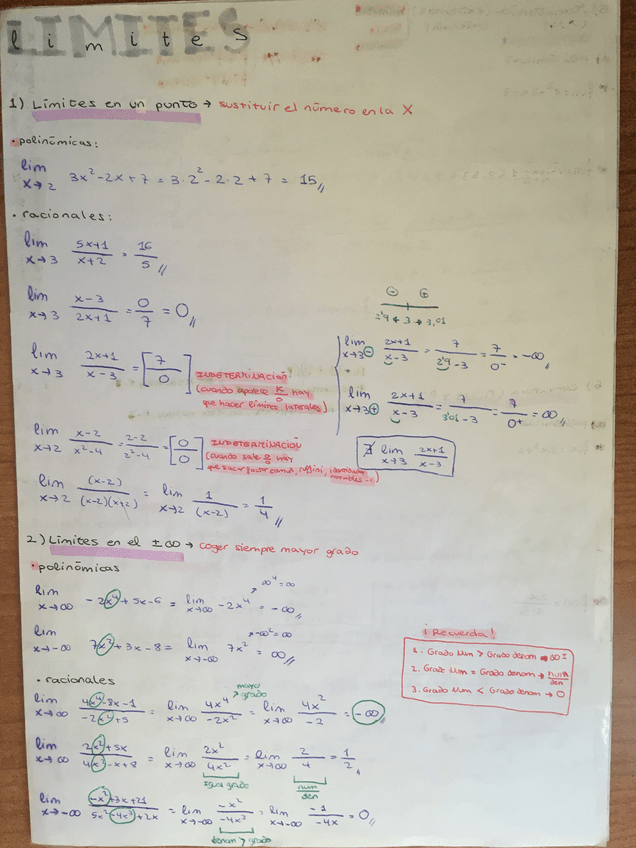 LIMITES
limites
1) Límites en un punto → sustituir el número en la X
• polinómicas:
lim x→2 3x²-2x+7 = 3·2²-2·2+7 = 15//
• racionales:
lim x→3 (5x+1)/(x+2) = 16/5//
lim x→3 (x-3)/(2x+1) = 0/7 = 0//
lim x→3 (2x+1)/(x-3) = [7/0] INDETERMINACIÓN
(cuando aparece K/0 hay
que hacer límites laterales)
⊖ ⊕
2'9 3 → 3,01
lim x→3⊖ (2x+1)/(x-3) = 7/(2'9-3) = 7/0⁻ = -∞//
lim x→3⊕ (2x+1)/(x-3) = 7/(3'01-3) = 7/0⁺ = ∞//
∄ lim x→3 (2x+1)/(x-3)
lim x→2 (x-2)/(x²-4) = (2-2)/(2²-4) = [0/0] INDETERMINACIÓN
(cuando sale 0/0 hay
que sacar factor común, ruffini, notables...)
lim x→2 (x-2)/((x-2)(x+2)) = lim x→2 1/(x-2) = 1/4//
2) Límites en el ±∞ → coger siempre mayor grado
• polinómicas
∞⁴=∞
lim x→∞ -2x⁴+5x-6 = lim x→∞ -2x⁴ = -∞//
-∞²=∞
lim x→-∞ 7x²+3x-8 = lim 7x² = ∞//
¡Recuerda!
1. Grado Num > Grado denom → ∞±
2. Grado Num = Grado denom → num/den
3. Grado Num < Grado denom → 0
• racionales
mayor grado
lim x→∞ (4x⁴-8x-1)/(-2x²+5) = lim x→∞ 4x⁴/-2x² = lim x→∞ 4x²/-2 = -∞
lim x→∞ (2x²+5x)/(4x²-x+8) = lim x→∞ 2x²/4x² = lim x→∞ 2/4 = 1/2//
Igual grado
num/den
lim x→-∞ (-x²+3x+21)/(5x²-4x³+2x) = lim x→-∞ -x²/-4x³ = lim x→-∞ -1/-4x = 0//
denom > grado